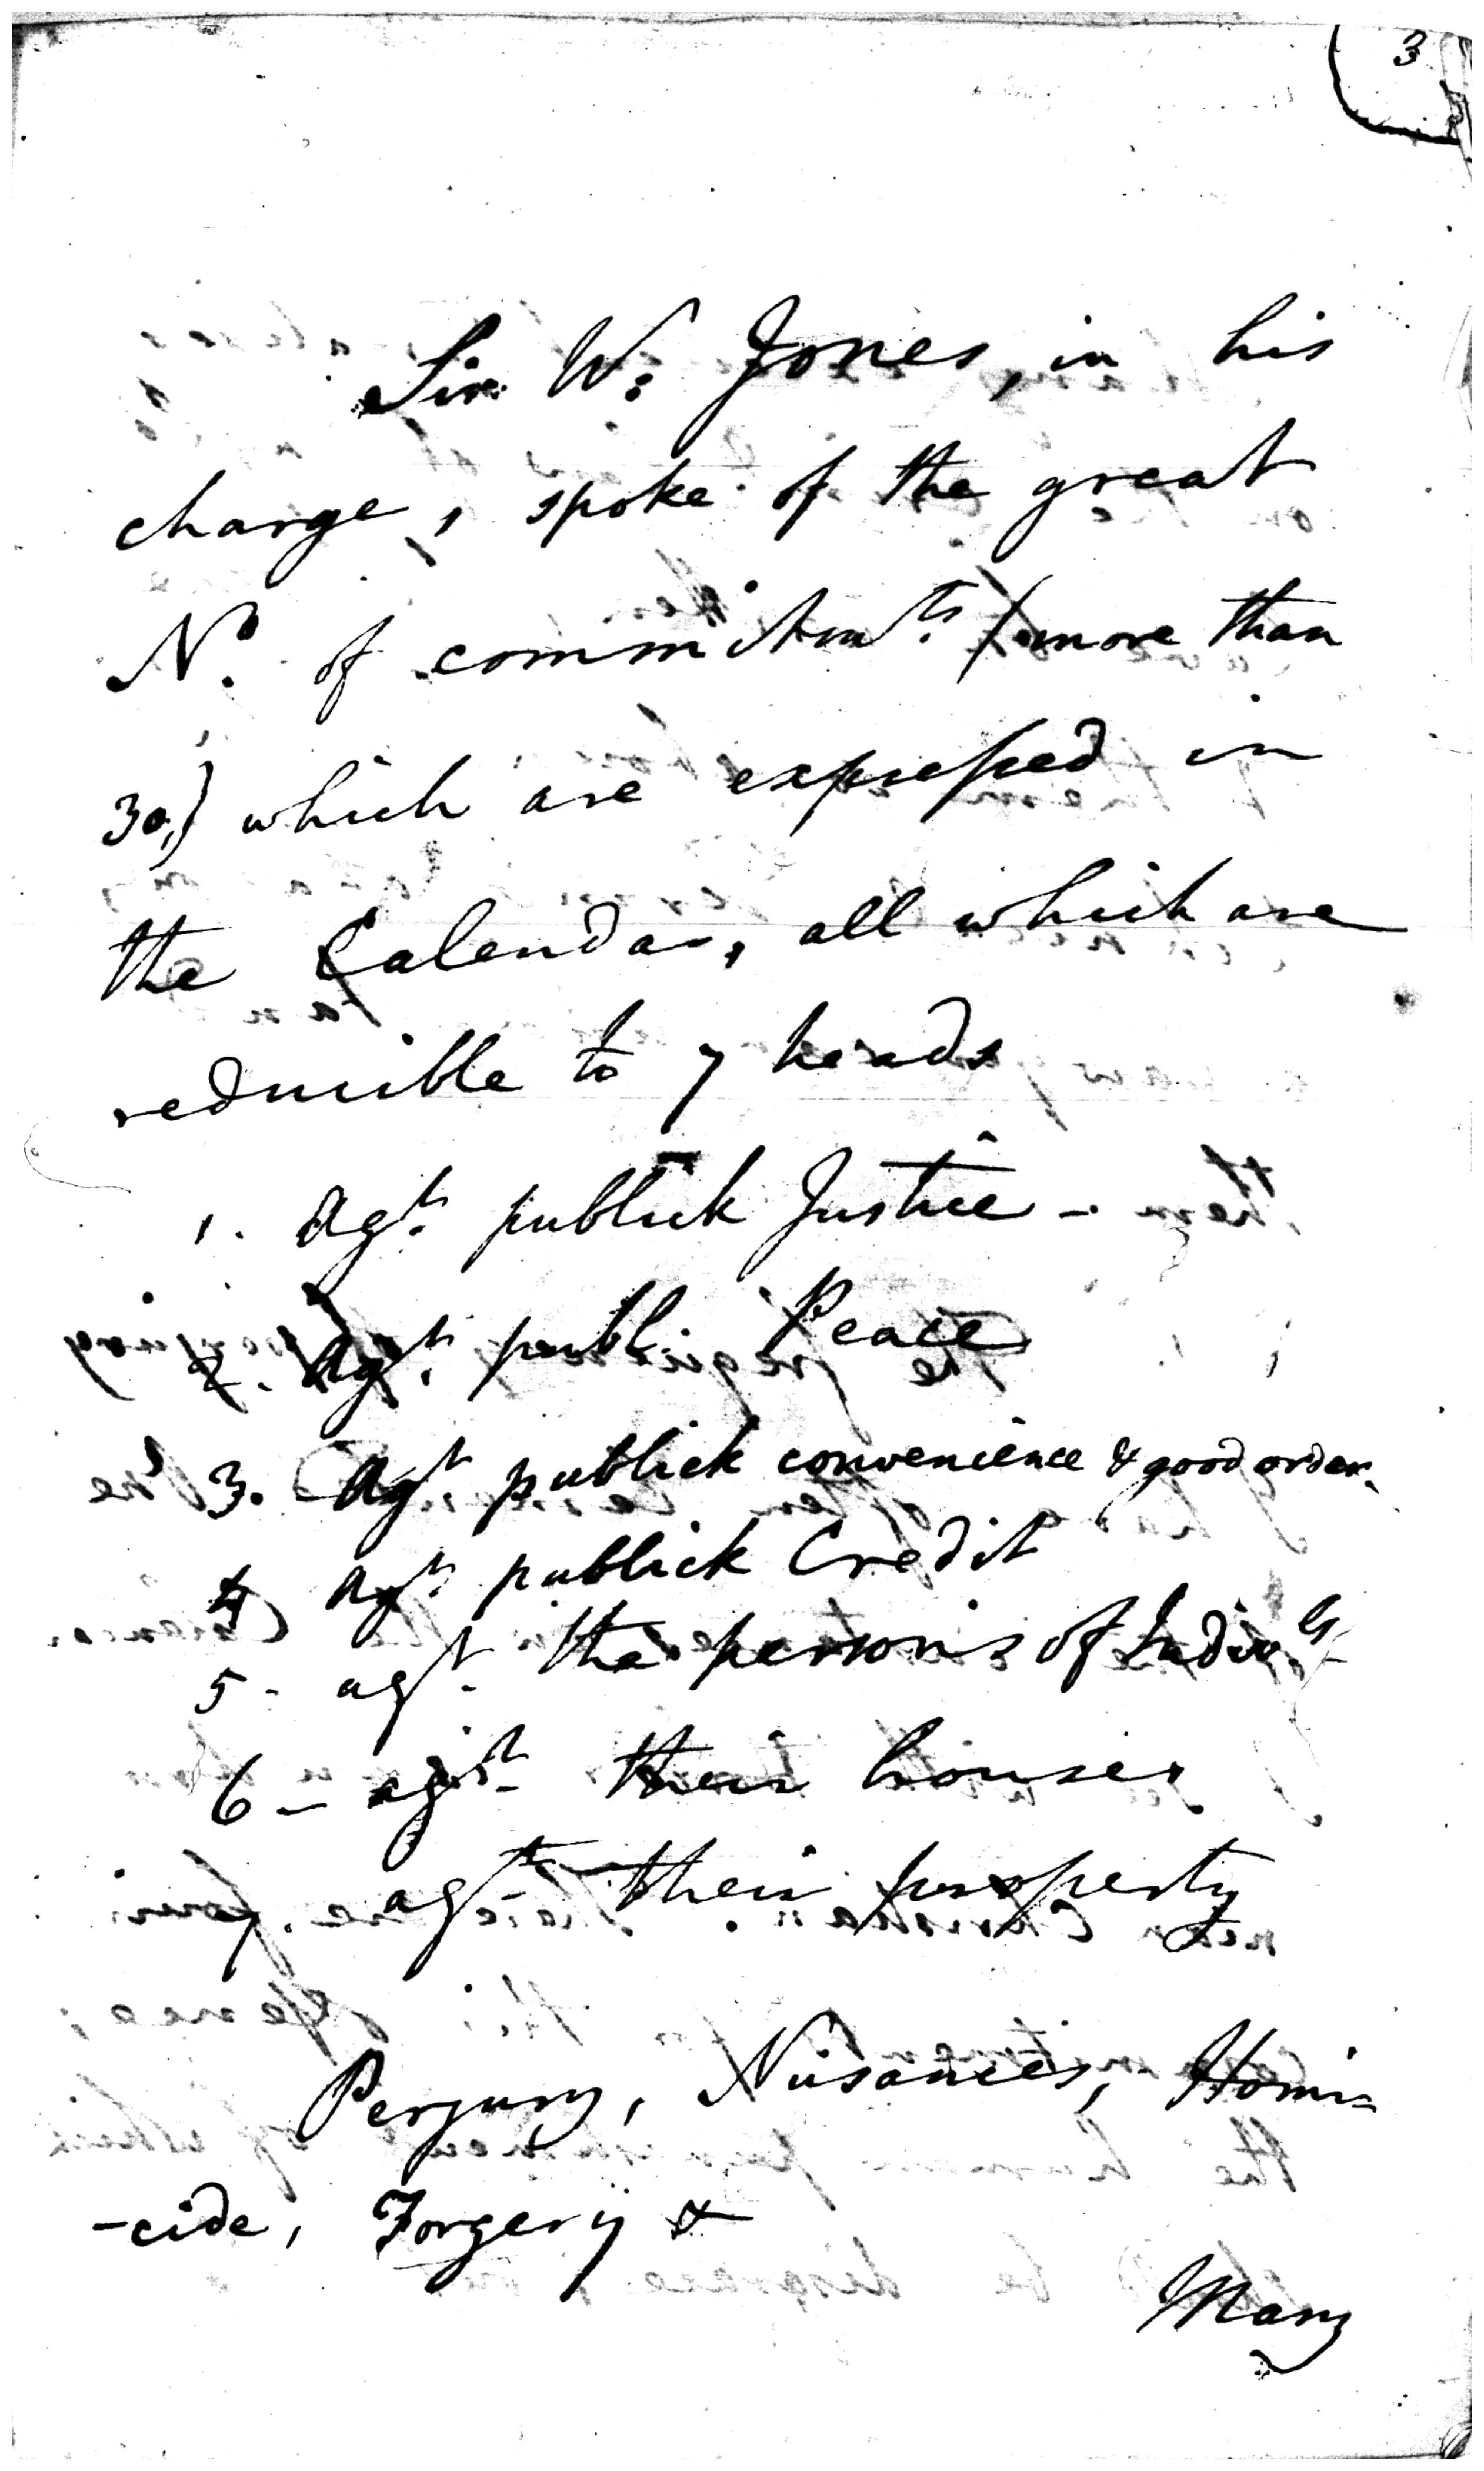 3
Sir Wm Jones, in his
charge, spoke of the great
No. of commitmts (more than
30,) which are expressed in
the Calendar, all which are
reducible to 7 heads
1. Agst publick Justice -
2. Agst publ. Peace
3. Agst publick convenience & good order.
4 Agst publick Credit
5 - agst the persons of Indivls
6 - agst their houses
7. agst their property
Perjury, Nusances, Homi=
-cide, Forgery &
Many